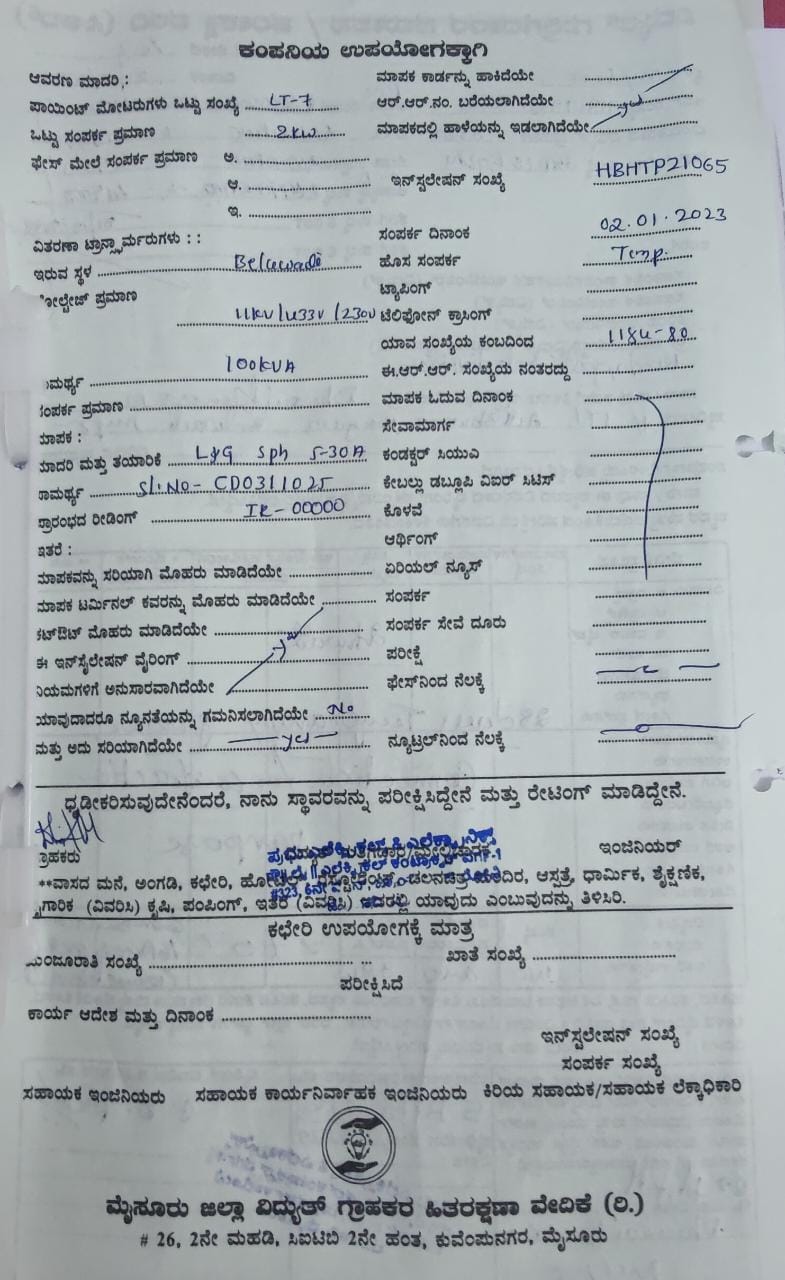 ಕಂಪನಿಯ ಉಪಯೋಗಕ್ಕಾಗಿ
ಆವರಣ ಮಾದರಿ : ಮಾಪಕ ಕಾರ್ಡನ್ನು ಹಾಕಿದೆಯೇ
ಪಾಯಿಂಟ್ ಮೋಟರುಗಳು ಒಟ್ಟು ಸಂಖ್ಯೆ LT-7 ಆರ್.ಆರ್.ನಂ. ಬರೆಯಲಾಗಿದೆಯೇ
ಒಟ್ಟು ಸಂಪರ್ಕ ಪ್ರಮಾಣ 2KW ಮಾಪಕದಲ್ಲಿ ಹಾಳೆಯನ್ನು ಇಡಲಾಗಿದೆಯೇ yes
ಫೇಸ್ ಮೇಲೆ ಸಂಪರ್ಕ ಪ್ರಮಾಣ ಅ.
ಆ. ಇನ್‌ಸ್ಟಲೇಷನ್ ಸಂಖ್ಯೆ HBHTP21065
ಇ.
ವಿತರಣಾ ಟ್ರಾನ್ಸ್ಫಾರ್ಮರುಗಳು : : ಸಂಪರ್ಕ ದಿನಾಂಕ 02.01.2023
ಇರುವ ಸ್ಥಳ Belawadi ಹೊಸ ಸಂಪರ್ಕ Temp.
ೋಲ್ಟೇಜ್ ಪ್ರಮಾಣ ಟ್ಯಾಪಿಂಗ್
11KV/433V/230V ಟೆಲಿಫೋನ್ ಕ್ರಾಸಿಂಗ್
ಯಾವ ಸಂಖ್ಯೆಯ ಕಂಬದಿಂದ 1184-80
ಾಮರ್ಥ್ಯ 100KVA ಈ.ಆರ್.ಆರ್. ಸಂಖ್ಯೆಯ ನಂತರದ್ದು
ಸಂಪರ್ಕ ಪ್ರಮಾಣ ಮಾಪಕ ಓದುವ ದಿನಾಂಕ
ಮಾಪಕ : ಸೇವಾಮಾರ್ಗ
ಮಾದರಿ ಮತ್ತು ತಯಾರಿಕೆ L&G Sph 5-30A ಕಂಡಕ್ಟರ್ ಸಿಯುಎ
ಸಾಮರ್ಥ್ಯ Sl.No- CD0311025 ಕೇಬಲ್ಲು ಡಬ್ಲೂಪಿ ವಿಐರ್ ಸಿಟಿಸ್
ಪ್ರಾರಂಭದ ರೀಡಿಂಗ್ IR-00000 ಕೊಳವೆ
ಇತರೆ : ಆರ್ಥಿಂಗ್
ಮಾಪಕವನ್ನು ಸರಿಯಾಗಿ ಮೊಹರು ಮಾಡಿದೆಯೇ ಏರಿಯಲ್ ನ್ಯೂಸ್
ಮಾಪಕ ಟರ್ಮಿನಲ್ ಕವರನ್ನು ಮೊಹರು ಮಾಡಿದೆಯೇ ಸಂಪರ್ಕ
ಕಟ್‌ಔಟ್ ಮೊಹರು ಮಾಡಿದೆಯೇ ಸಂಪರ್ಕ ಸೇವೆ ದೂರು
ಈ ಇನ್‌ಸ್ಟಲೇಷನ್ ವೈರಿಂಗ್ yes ಪರೀಕ್ಷೆ
ನಿಯಮಗಳಿಗೆ ಅನುಸಾರವಾಗಿದೆಯೇ ಫೇಸ್‌ನಿಂದ ನೆಲಕ್ಕೆ
ಯಾವುದಾದರೂ ನ್ಯೂನತೆಯನ್ನು ಗಮನಿಸಲಾಗಿದೆಯೇ No
ಮತ್ತು ಅದು ಸರಿಯಾಗಿದೆಯೇ yes ನ್ಯೂಟ್ರಲ್‌ನಿಂದ ನೆಲಕ್ಕೆ
ಧೃಡೀಕರಿಸುವುದೇನೆಂದರೆ, ನಾನು ಸ್ಥಾವರವನ್ನು ಪರೀಕ್ಷಿಸಿದ್ದೇನೆ ಮತ್ತು ರೇಟಿಂಗ್ ಮಾಡಿದ್ದೇನೆ.
ಗ್ರಾಹಕರು ಇಂಜಿನಿಯರ್
**ವಾಸದ ಮನೆ, ಅಂಗಡಿ, ಕಛೇರಿ, ಹೋಟೆಲ್, ಆಸ್ಪತ್ರೆ, ಧಾರ್ಮಿಕ, ಶೈಕ್ಷಣಿಕ,
ೈಗಾರಿಕ (ವಿವರಿಸಿ) ಕೃಷಿ, ಪಂಪಿಂಗ್, ಇತರೆ (ವಿವರಿಸಿ) ಇದರಲ್ಲಿ ಯಾವುದು ಎಂಬುವುದನ್ನು ತಿಳಿಸಿರಿ.
ಕಛೇರಿ ಉಪಯೋಗಕ್ಕೆ ಮಾತ್ರ
ಮಂಜೂರಾತಿ ಸಂಖ್ಯೆ ಖಾತೆ ಸಂಖ್ಯೆ
ಪರೀಕ್ಷಿಸಿದೆ
ಕಾರ್ಯ ಆದೇಶ ಮತ್ತು ದಿನಾಂಕ
ಇನ್‌ಸ್ಟಲೇಷನ್ ಸಂಖ್ಯೆ
ಸಂಪರ್ಕ ಸಂಖ್ಯೆ
ಸಹಾಯಕ ಇಂಜಿನಿಯರು ಸಹಾಯಕ ಕಾರ್ಯನಿರ್ವಾಹಕ ಇಂಜಿನಿಯರು ಕಿರಿಯ ಸಹಾಯಕ/ಸಹಾಯಕ ಲೆಕ್ಕಾಧಿಕಾರಿ
ಮೈಸೂರು ಜಿಲ್ಲಾ ವಿದ್ಯುತ್ ಗ್ರಾಹಕರ ಹಿತರಕ್ಷಣಾ ವೇದಿಕೆ (ರಿ.)
# 26, 2ನೇ ಮಹಡಿ, ಸಿಐಟಿಬಿ 2ನೇ ಹಂತ, ಕುವೆಂಪುನಗರ, ಮೈಸೂರು